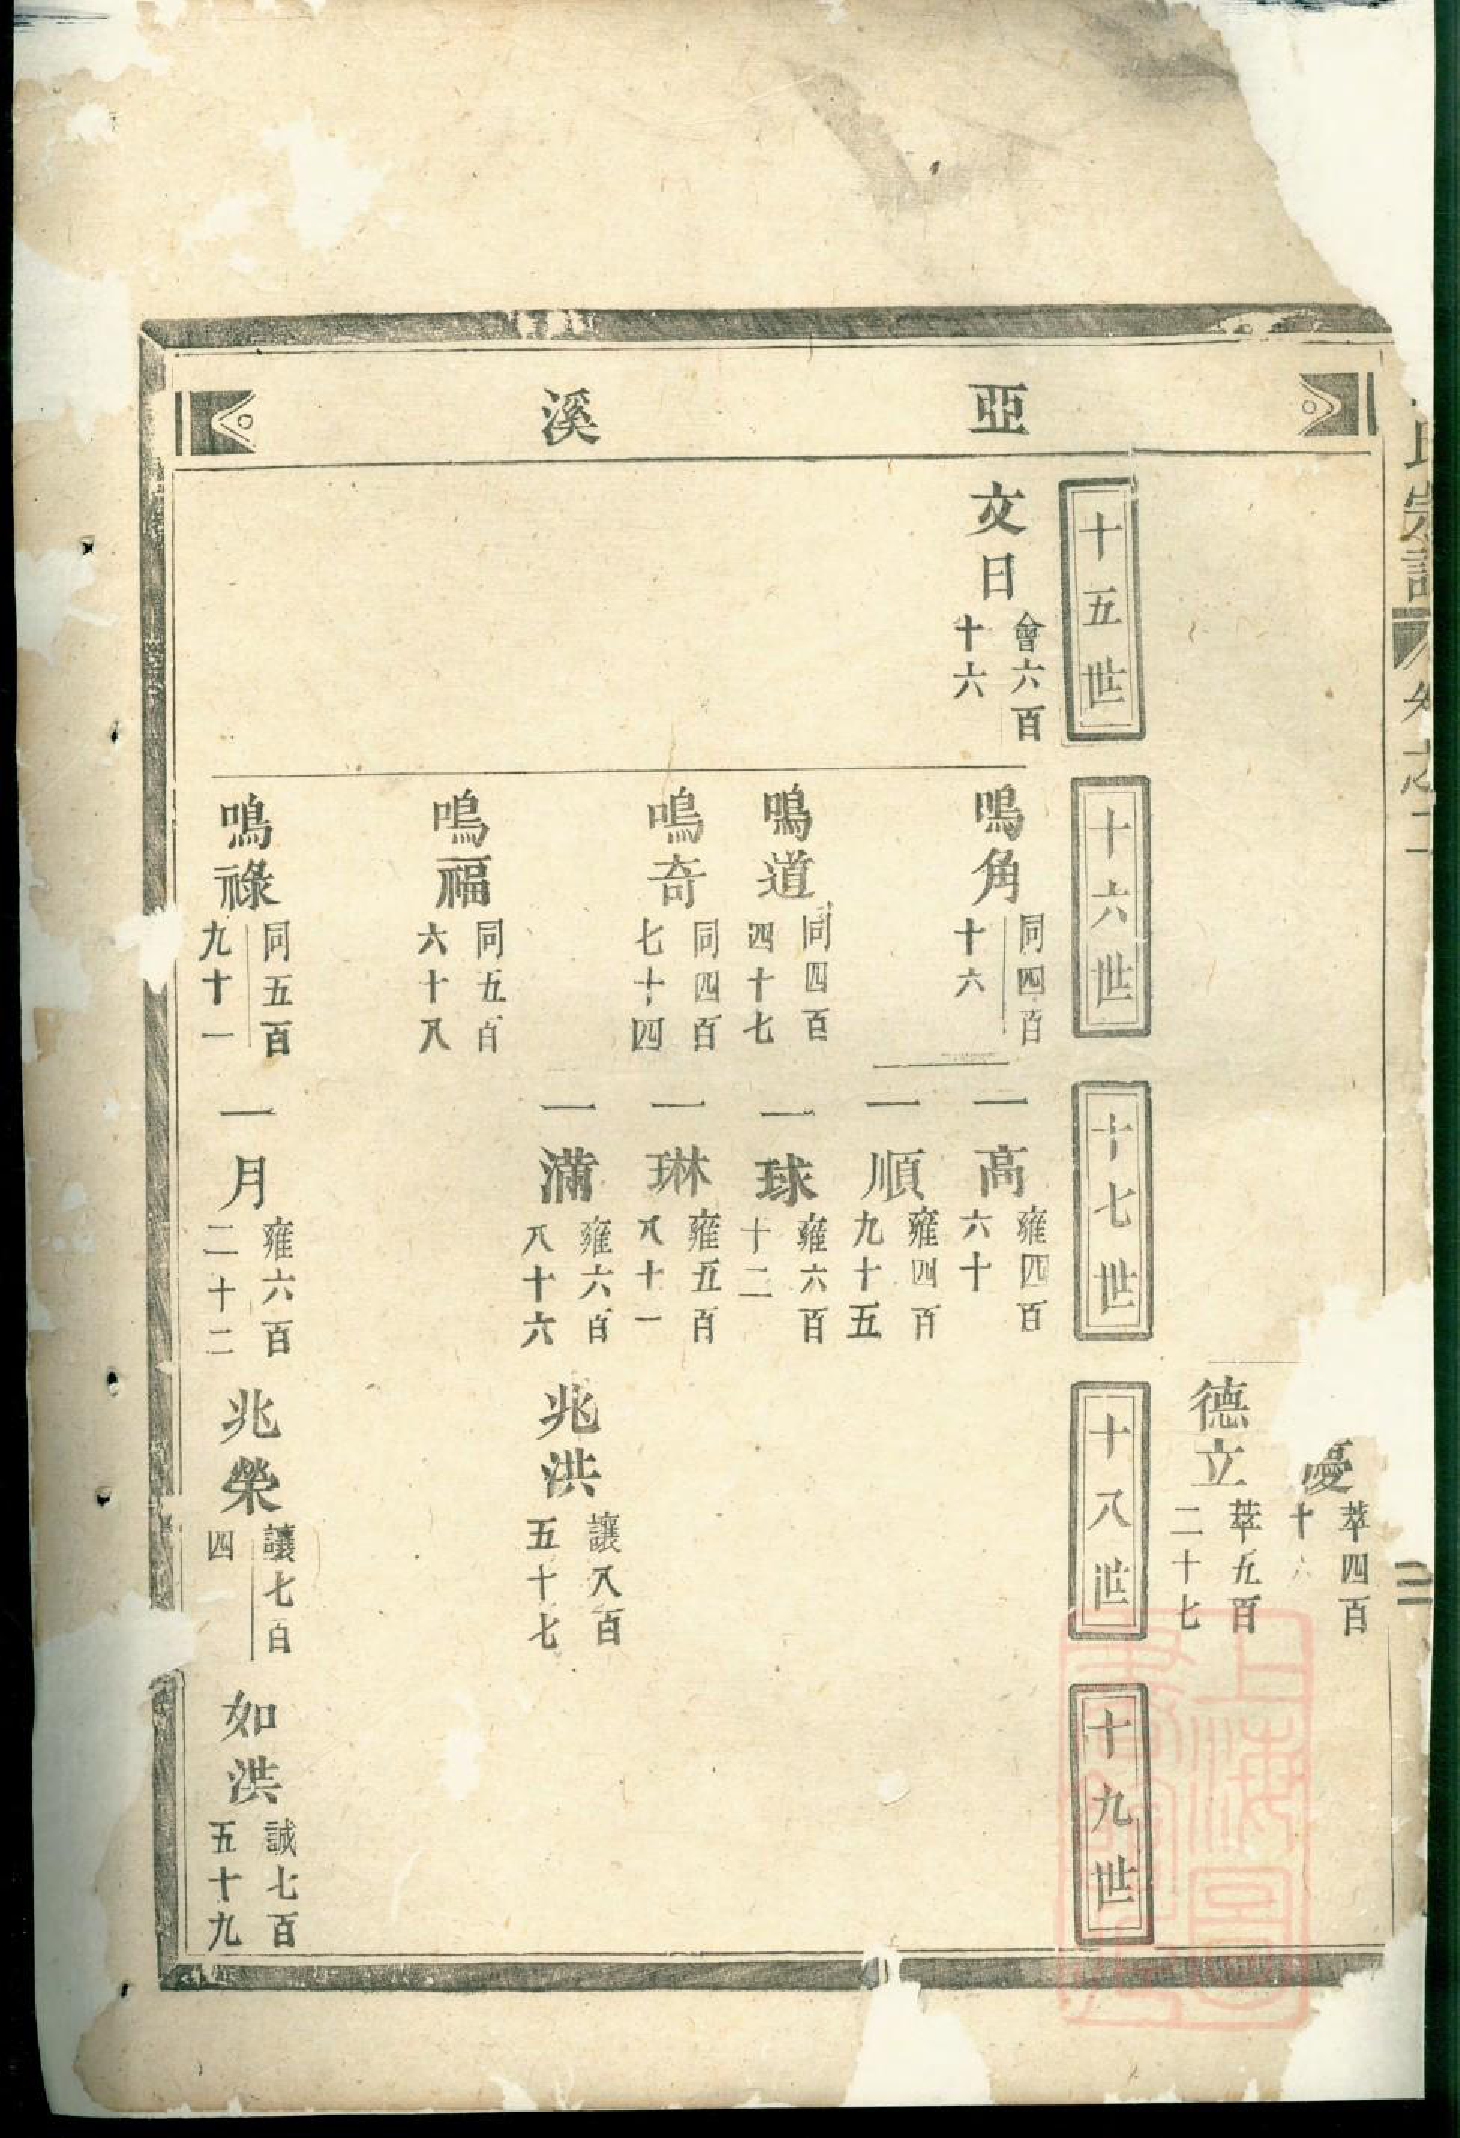 亞溪
氏宗譜
卷之二
二
憂
萃四百
十六
德立
萃五百
二十七
十五世
十六世
十七世
十八世
十九世
文日
會六百
十六
鳴角
同四百
十六
一高
雍四百
六十
一順
雍四百
九十五
鳴道
同四百
四十七
一球
雍六百
十二
鳴奇
同四百
七十四
一琳
雍五百
八十一
一滿
雍六百
八十六
兆洪
讓八百
五十七
鳴福
同五百
六十八
鳴祿
同五百
九十一
一月
雍六百
二十二
兆榮
讓七百
四
如洪
誠七百
五十九
上海圖
書館藏